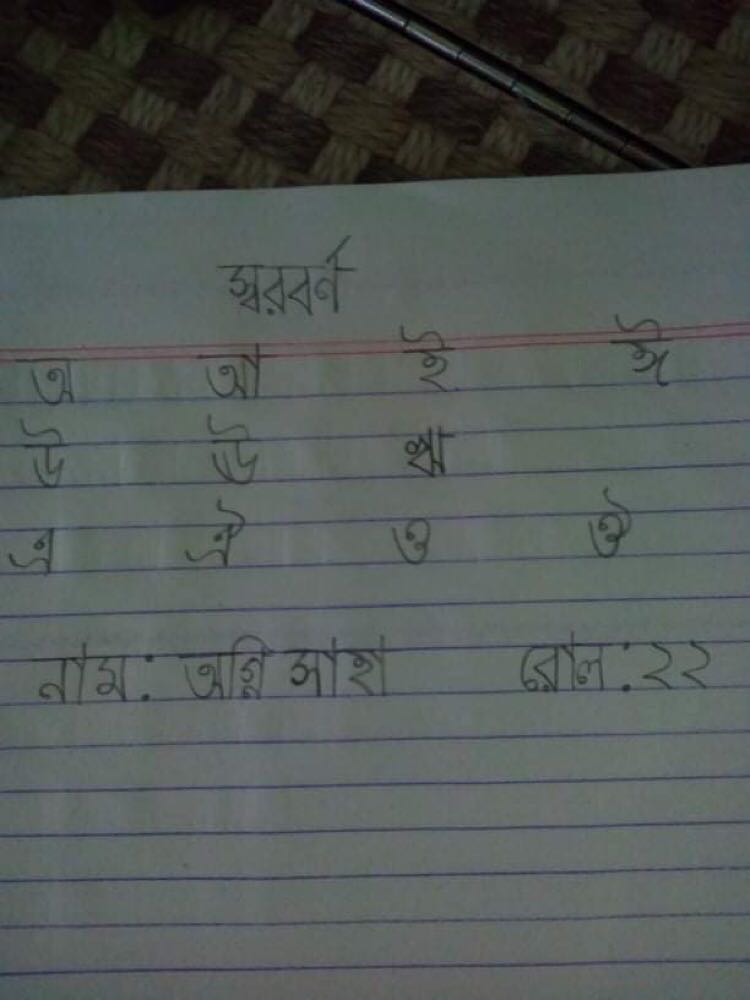 স্বরবর্ন
অ আ ই ঈ
উ ঊ ঋ
এ ঐ ও ঔ
নাম: অগ্নি সাহা রোল:২২